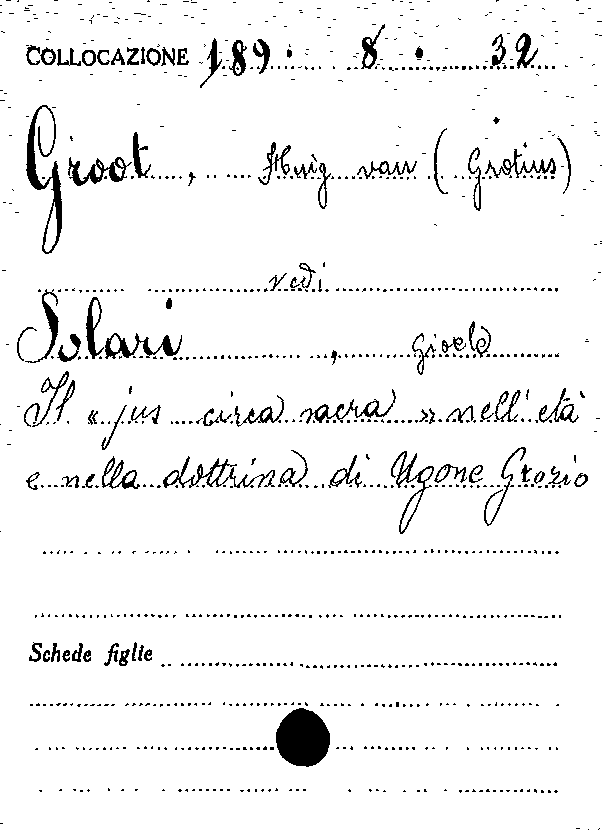 COLLOCAZIONE 189. 8. 32
Groot, Huig van (Grotius)
vedi
Solari, Gioele
Il « jus circa sacra » nell'età
e nella dottrina di Ugone Grozio
Schede figlie